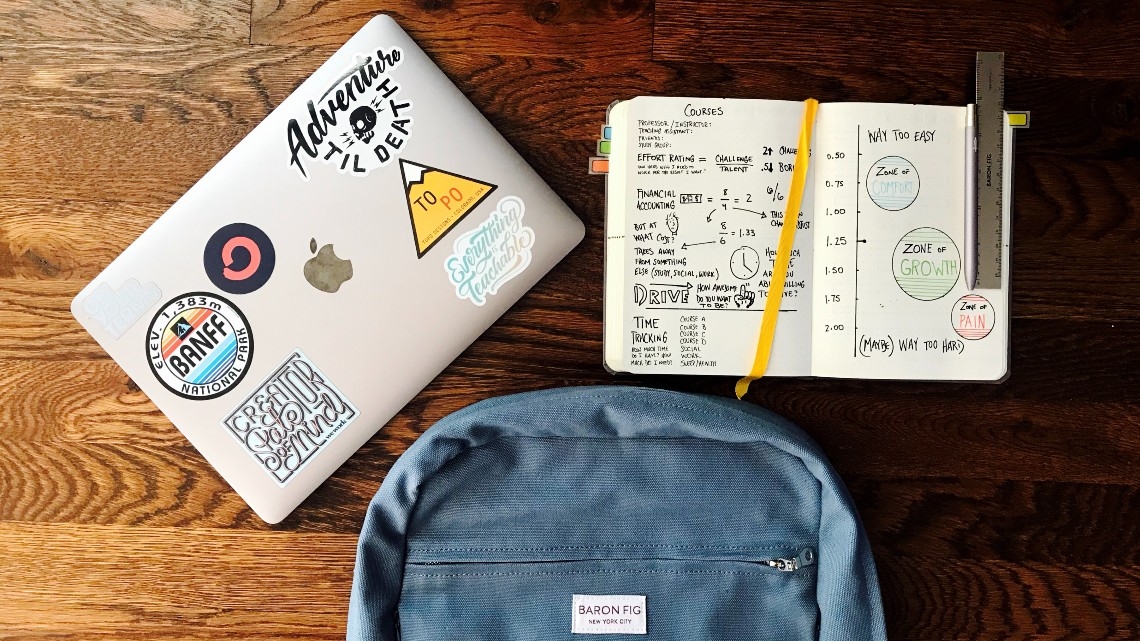 Adventure
TIL DEATH
TO
PO
TOPO DESIGNS, COLORADO, USA
Everything
Teachable
ELEV. 1,383m
BANFF
NATIONAL PARK
CREATOR
of Mind
wework
COURSES
PROFESSOR / INSTRUCTOR:
TEACHING ASSISTANT:
FRIENDS:
STUDY GROUP:
EFFORT RATING = CHALLENGE
TALENT
FINANCIAL
ACCOUNTING
= 8
4
= 2
8
6
= 1.33
6/6
BUT AT
WHAT COST?
TAKES AWAY
FROM SOMETHING
ELSE (STUDY, SOCIAL, WORK)
DRIVE
HOW AWESOME
DO YOU WANT
TO BE?
TIME
TRACKING
HOW MUCH TIME
DO I HAVE? HOW
MUCH DO I NEED?
COURSE A
COURSE B
COURSE C
COURSE D
SOCIAL
WORK
SLEEP/HEALTH
WAY TOO EASY
0.50
0.75
1.00
1.25
1.50
1.75
2.00
ZONE OF
COMFORT
ZONE OF
GROWTH
ZONE OF
PAIN
(MAYBE) WAY TOO HARD
BARON FIG
BARON FIG
NEW YORK CITY